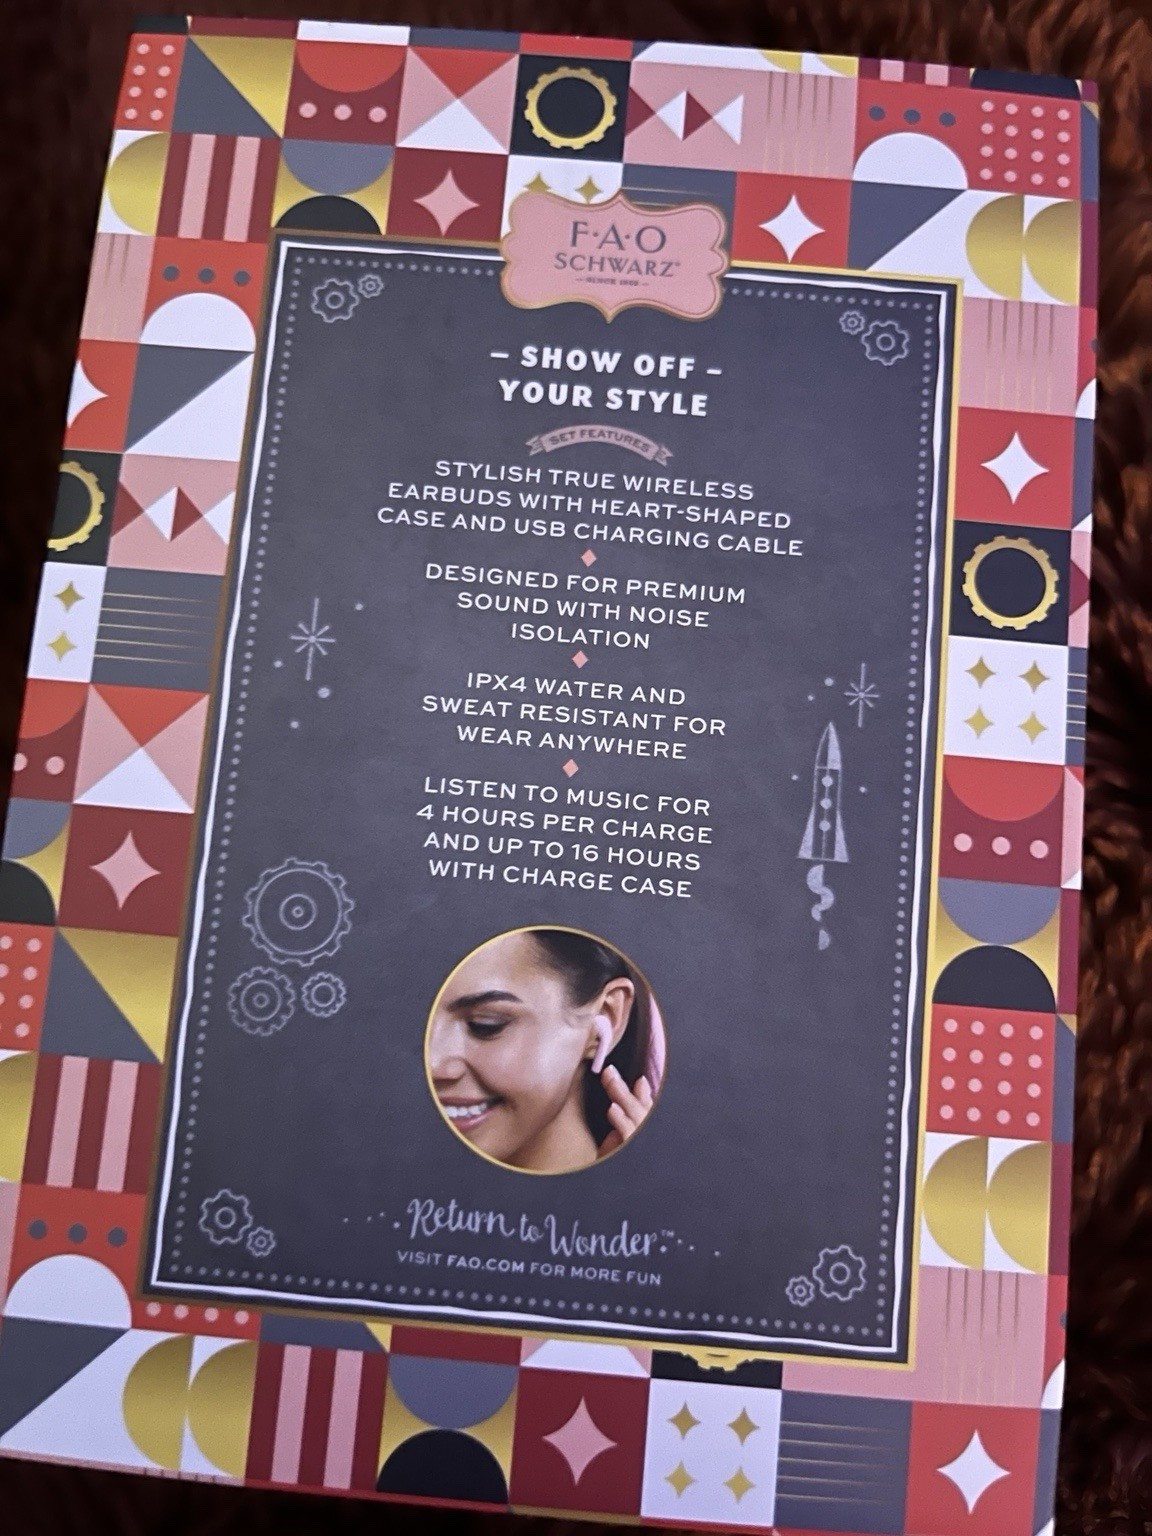 F·A·O
SCHWARZ
– SHOW OFF –
YOUR STYLE
SET FEATURES
STYLISH TRUE WIRELESS
EARBUDS WITH HEART-SHAPED
CASE AND USB CHARGING CABLE
DESIGNED FOR PREMIUM
SOUND WITH NOISE
ISOLATION
IPX4 WATER AND
SWEAT RESISTANT FOR
WEAR ANYWHERE
LISTEN TO MUSIC FOR
4 HOURS PER CHARGE
AND UP TO 16 HOURS
WITH CHARGE CASE
Return to Wonder.™
VISIT FAO.COM FOR MORE FUN